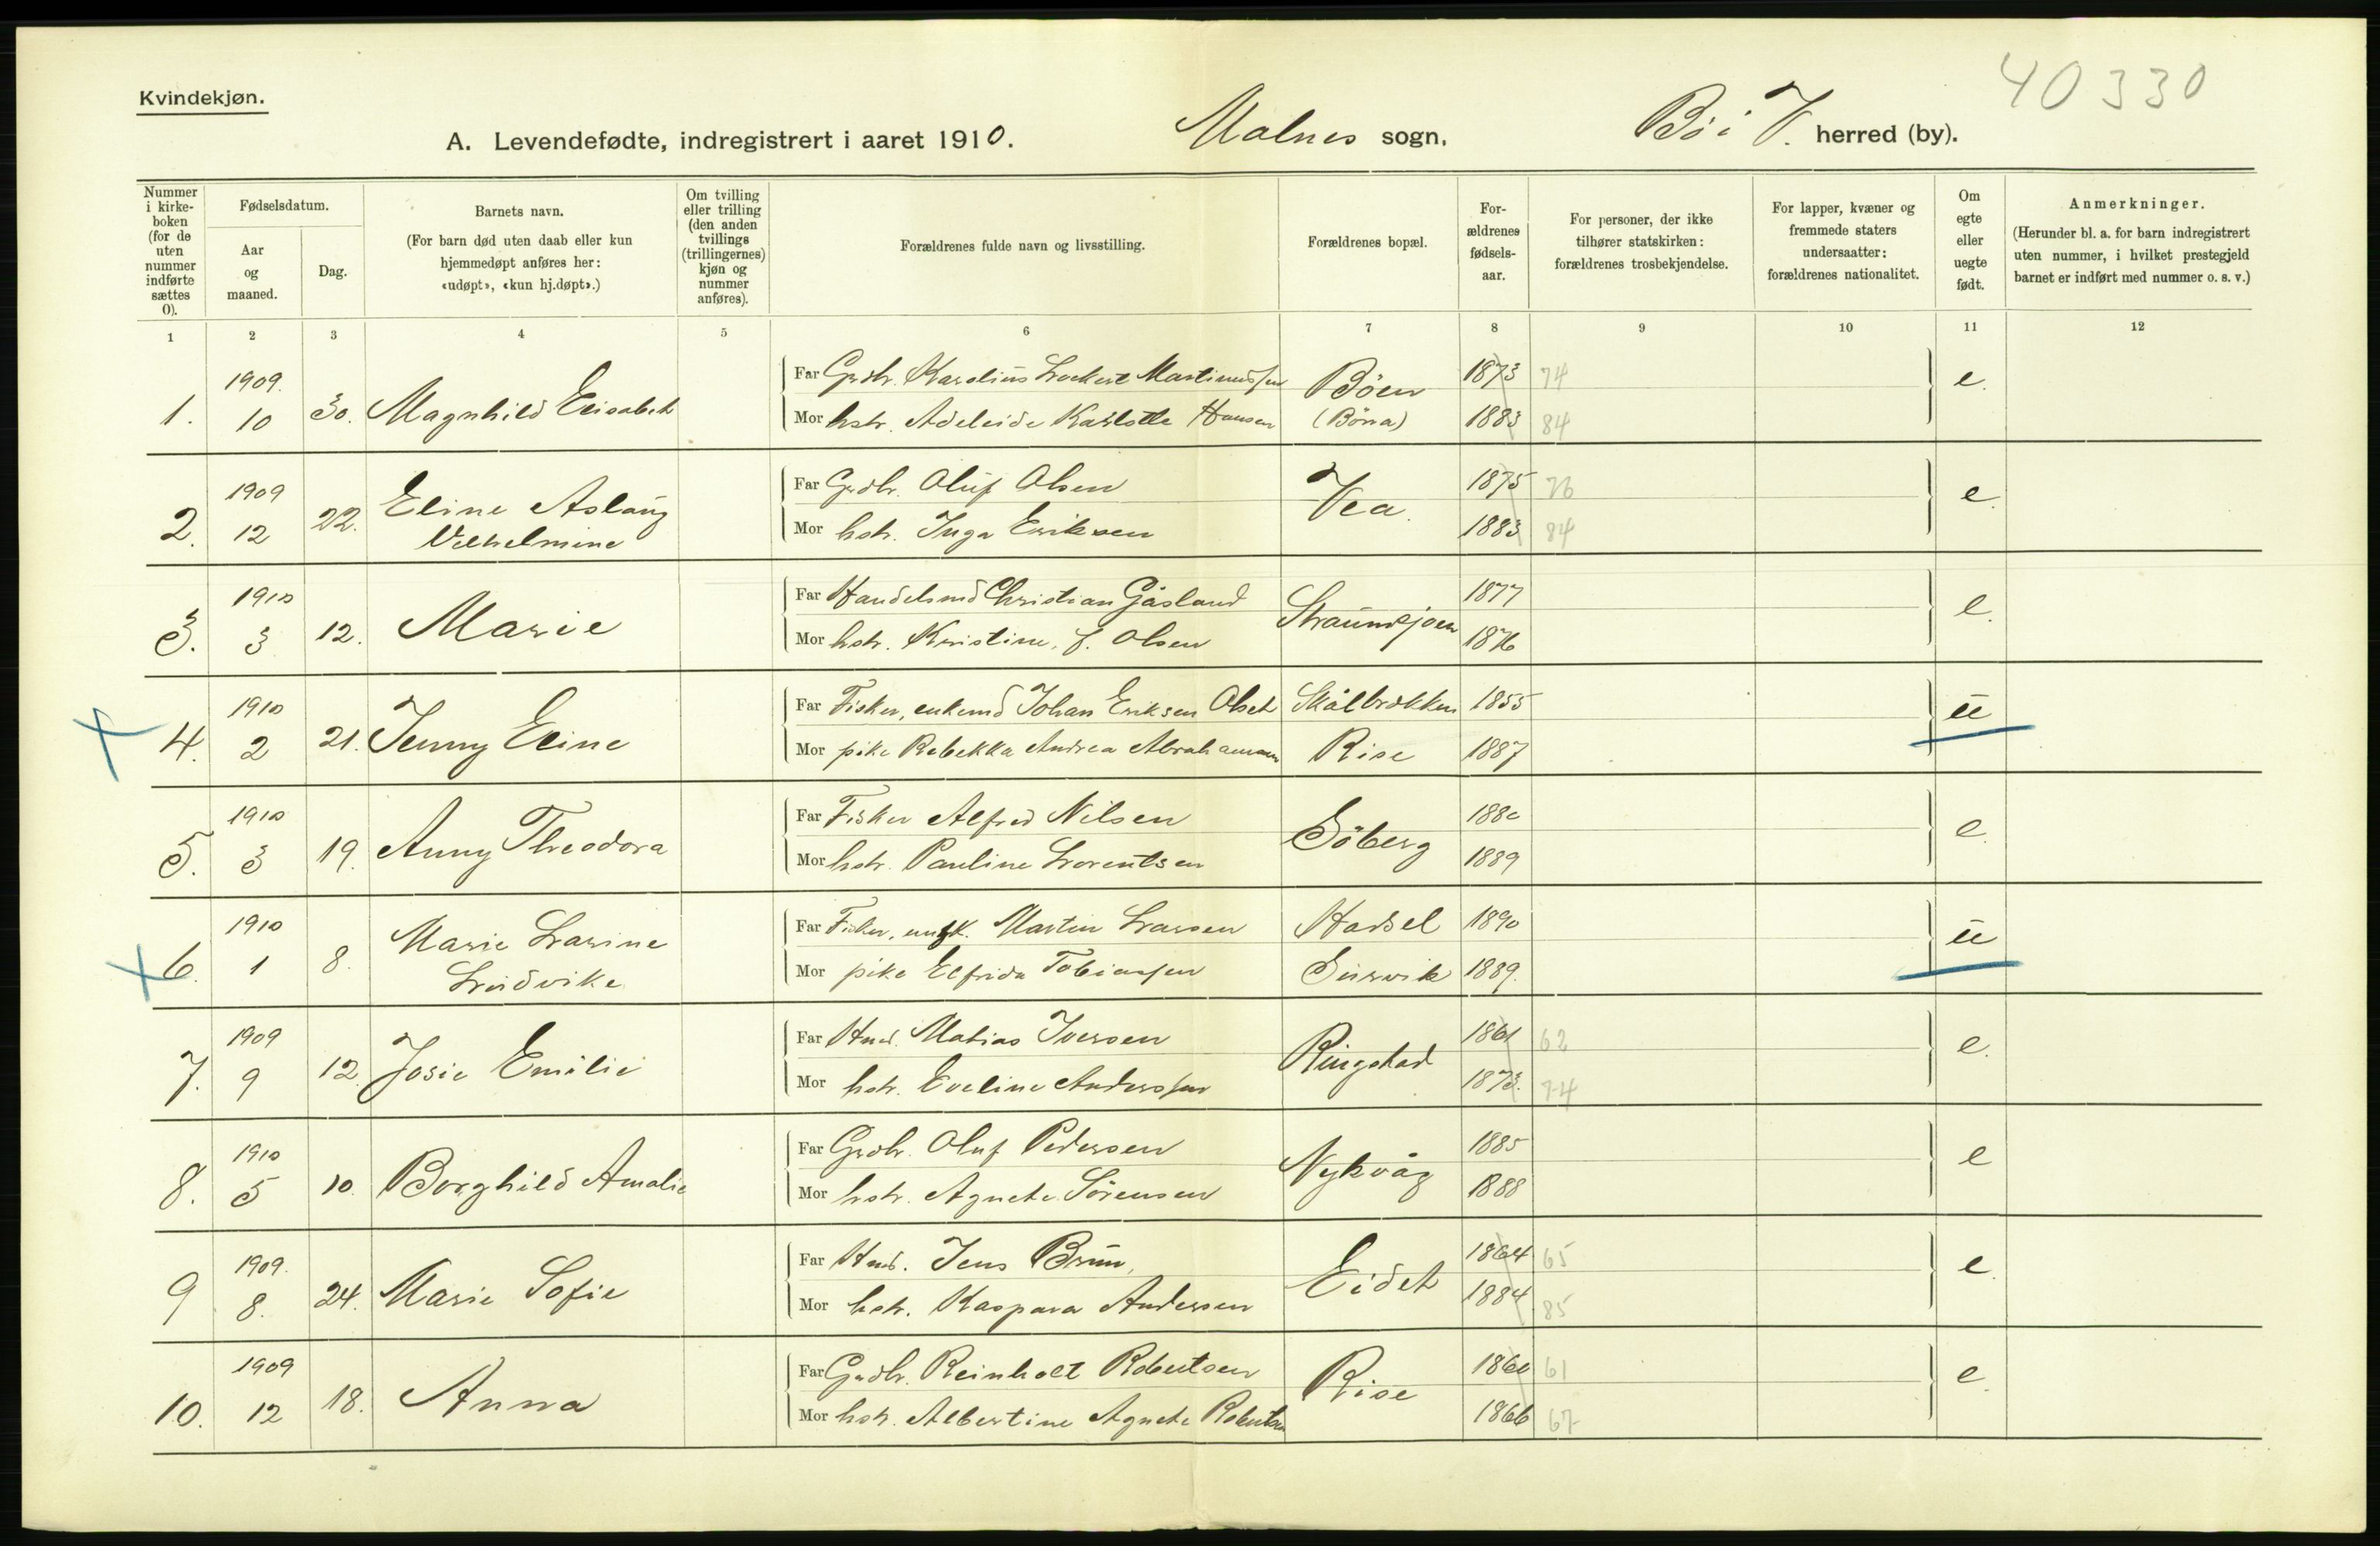 40330
Kvindekjøn.
A. Levendefødte, indregistrert i aaret 1910. Malnes sogn, Bø i V. herred (by).
Nummer i kirke-boken (for de uten nummer indførte sættes 0).
Fødselsdatum.
Aar og maaned.
Dag.
Barnets navn.
(For barn død uten daab eller kun hjemmedøpt anføres her: «udøpt», «kun hj.døpt».)
Om tvilling eller trilling (den anden tvillings (trillingernes) kjøn og nummer anføres).
Forældrenes fulde navn og livsstilling.
Forældrenes bopæl.
For-ældrenes fødsels-aar.
For personer, der ikke tilhører statskirken: forældrenes trosbekjendelse.
For lapper, kvæner og fremmede staters undersaatter: forældrenes nationalitet.
Om egte eller uegte født.
Anmerkninger.
(Herunder bl. a. for barn indregistrert uten nummer, i hvilket prestegjeld barnet er indført med nummer o. s. v.)
1 2 3 4 5 6 7 8 9 10 11 12
1909. Far Grdbr. Karelius Lockert Martinussen Böen 1873 74 e.
1. 10 30. Magnhild Elisabet Mor hstr. Adeleide Karlotte Hansen (Böna) 1883 84
1909 Far Grdbr. Oluf Olsen Vea. 1875 76 e.
2. 12 22. Eline Aslaug Vilhelmine Mor hstr. Inga Eriksen 1883 84
1910 Far Handelsmd Christian Gåsland Straumsjoen 1877 e.
3. 3 12. Marie Mor hstr. Kristine, f. Olsen 1876
1910 Far Fisker, enkemd Johan Eriksen Olset Skålbrekken 1855 u
4. 2 21. Jenny Eline Mor pike Rebekka Andrea Abrahamsen Rise 1887
1910 Far Fisker Alfred Nilsen Söberg 1880 e.
5. 3 19. Anny Theodora Mor hstr. Pauline Lorentsen 1889
1910 Far Fisker, ungk. Martin Larsen Hadsel 1890 u
6. 1 8. Marie Larine Ludvike Mor pike Elfrida Tobiassen Guvik 1889.
1909 Far Hmd. Matias Iversen Ringstad 1861 62 e.
7. 9 12 Josie Emilie Mor hstr. Eveline Anderssen 1873. 74
1910 Far Grdbr. Oluf Pedersen Nykvåg 1885 e
8. 5 10. Borghild Amalie Mor hstr. Agnete Sörensen 1888
1909. Far Hmd. Jens Brun, Eidet 1864 65 e.
9 8. 24. Marie Sofie Mor hstr. Kaspara Andersen 1884 85
1909 Far Grdbr. Reinholt Robertsen Rise 1860 61 e.
10. 12 18. Anna Mor hstr. Albertine Agnete Robertsen 1866 67